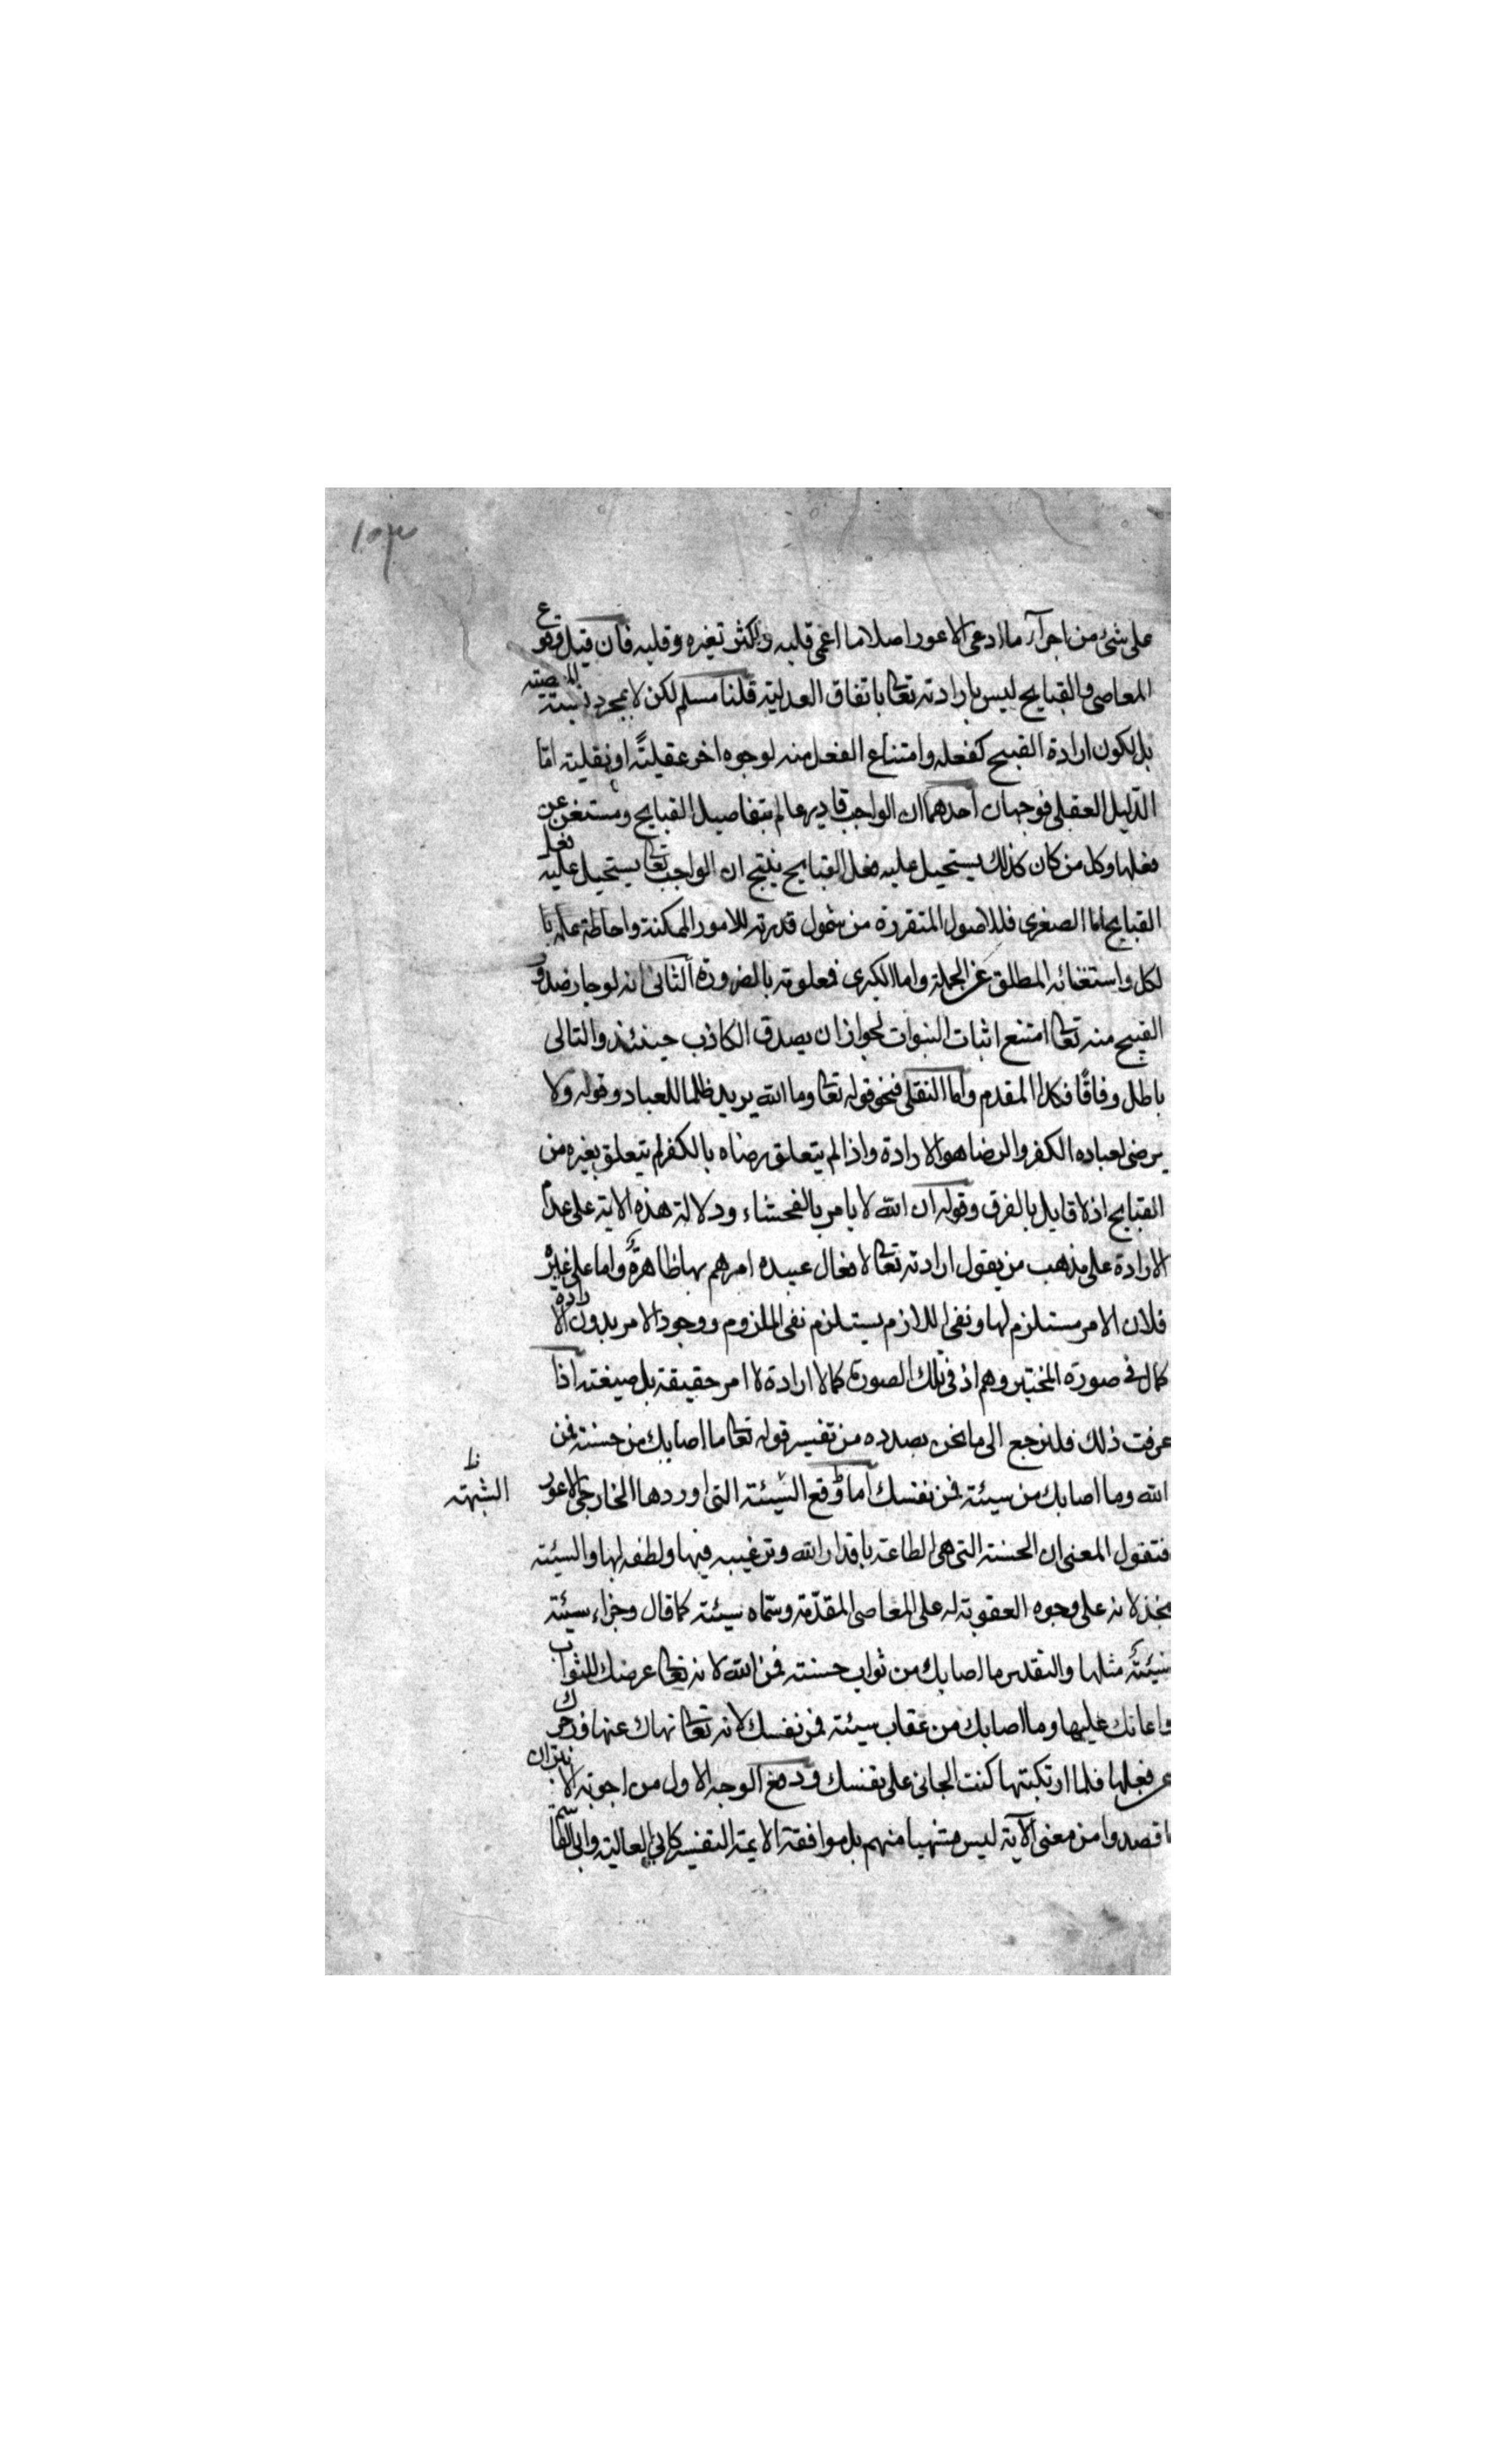 ١٥٣
على شئ من اجزآء ما ادعى الاعور اصلا ما اعمى قلبه واكثر تغيره وقلبه فان قيل وقوع
المعاصى والقبايح ليس بارادته تعالى باتفاق العدلية قلنا مسلم لكن لا بمجرد
بل لكون ارادة القبيح كفعله وامتناع الفعل منه لوجوه اخر عقلية او نقلية امّا
الدّليل العقلى فوجهان احدهما ان الواجب قادر عالم بتفاصيل القبايح ومستغن عن
فعلها وكل من كان كذلك يستحيل عليه فعل القبايح ينتج ان الواجب تعالى يستحيل عليه فعل
القبايح اما الصغرى فللاصول المتقررة من شمول قدرته للامور الممكنة واحاطة علمه با
لكل واستغنائه المطلق عن الجملة واما الكبرى فمعلومة بالضرورة الثانى انه لو جاز صدور
القبيح منه تعالى امتنع اثبات النبوات لجواز ان يصدق الكاذب حينئذ والتالى
باطل وفاقًا فكذا المقدم واما النقلى فنحو قوله تعالى وما الله يريد ظلما للعباد وقوله ولا
يرضى لعباده الكفر والرضا هو الارادة واذا لم يتعلق رضاه بالكفر لم يتعلق بغيره من
القبايح اذ لا قايل بالفرق وقوله ان الله لا يامر بالفحشاء ودلالة هذه الاية على عدم
الارادة على مذهب من يقول ارادته تعالى لافعال عبيده امرهم بها ظاهرة واما على غيره
فلان الامر مستلزم لها ونفى اللازم يستلزم نفى الملزوم ووجود الامر بدون الارادة
كما فى صورة المختبر وهم اذ فى تلك الصورة كما لا ارادة لا امر حقيقة بل صيغته اذا
عرفت ذلك فلنرجع الى ما نحن بصدده من تفسير قوله تعالى ما اصابك من حسنة فمن
الله وما اصابك من سيئة فمن نفسك اما وقع السّيئة التى اوردها الخارجى الاعور
الشبهة ظ
فنقول المعنى ان الحسنة التى هى الطاعة باقدار الله وترغيبه فيها ولطفه لها والسيئة
بخذلانه على وجوه العقوبة له على المعاصى المقدّمة وسمّاه سيئة كما قال وجزاء سيئة
سيئة مثلها والتقدير ما اصابك من ثواب حسنة فمن الله لانه تعالى عرضك للثواب
واعانك عليها وما اصابك من عقاب سيئة فمن نفسك لانه تعالى نهاك عنها وزجرك
عن فعلها فلما ارتكبتها كنت الجانى على نفسك ودفع الوجه الاول من اجوبة
ما قصدوا من معنى الآية ليس متنهيا منهم بل موافقة الايمة التفسير كابى العالية وابى القاسم